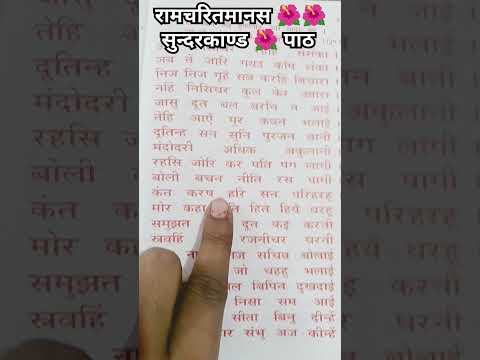 रामचरितमानस 🌺🌺
सुन्दरकाण्ड 🌺 पाठ
जब तें जारि गयउ कपि लंका
निज निज गृहँ सब करहिं बिचारा
नहिं निसिचर कुल केर उबारा
जासु दूत बल बरनि न जाई
तेहि आएँ पुर कवन भलाई
दूतिन्ह सन सुनि पुरजन बानी
मंदोदरी अधिक अकुलानी
रहसि जोरि कर पति पग लागी
बोली बचन नीति रस पागी
कंत करष हरि सन परिहरहू
मोर कहा हित हियँ धरहू
समुझत दूत कइ करनी
स्रवहिं रजनीचर घरनी
सचिव बोलाई
जो चहहु भलाई
बिपिन दुखदाई
निसा सम आई
सीता बिनु दीन्हें
संभु अज कीन्हें